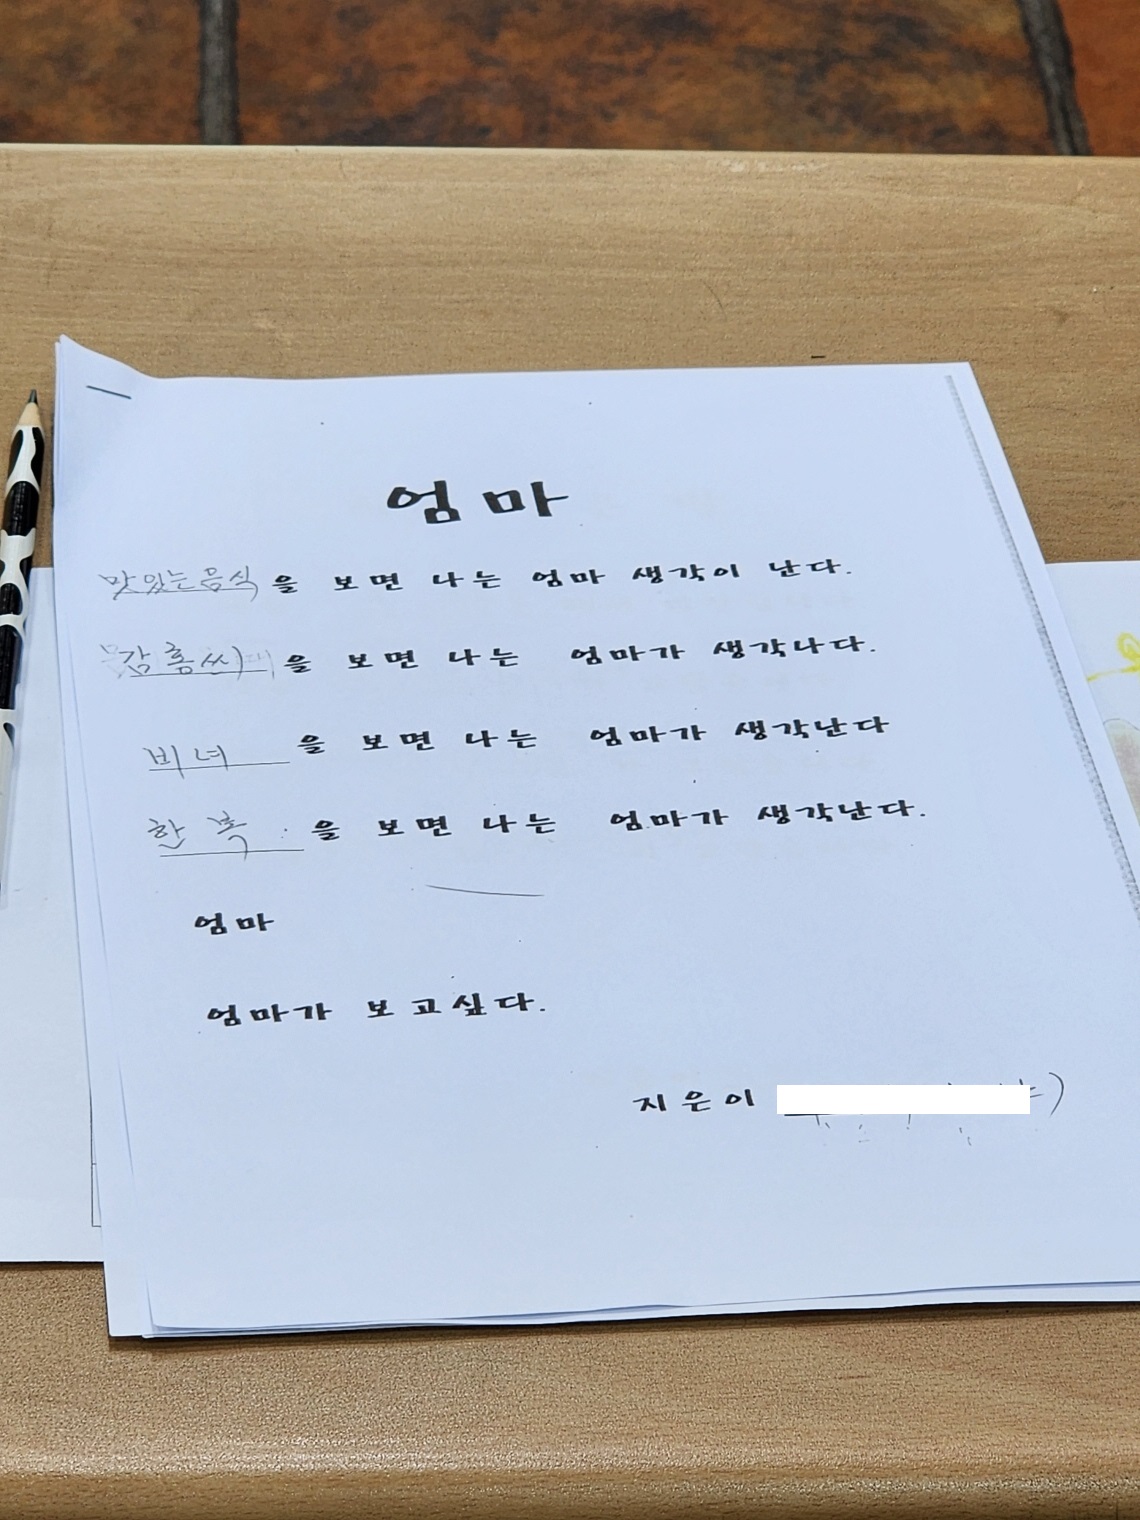 엄마
맛있는음식을 보면 나는 엄마 생각이 난다.
감홍씨을 보면 나는 엄마가 생각나다.
비녀을 보면 나는 엄마가 생각난다
한복을 보면 나는 엄마가 생각난다.
엄마
엄마가 보고싶다.
지은이